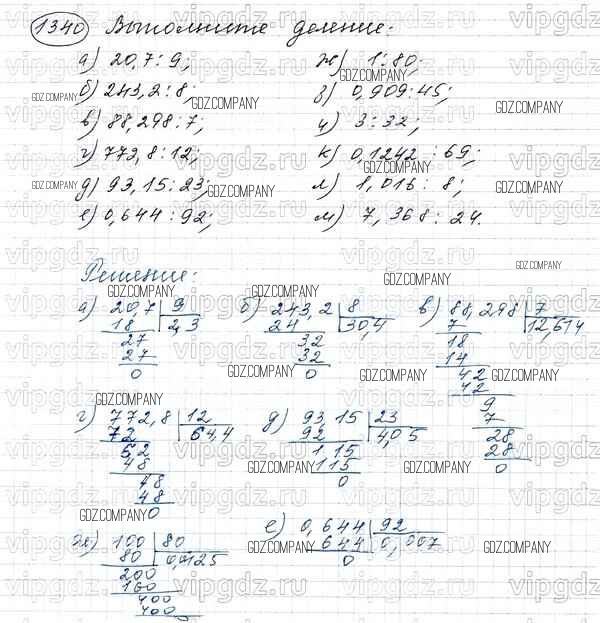 1340 Выполните деление:
а) 20,7 : 9; ж) 1 : 80;
б) 243,2 : 8; з) 0,909 : 45;
в) 88,298 : 7; и) 3 : 32;
г) 773,8 : 12; к) 0,1242 : 69;
д) 93,15 : 23; л) 1,016 : 8;
е) 0,644 : 92; м) 7,368 : 24.
Решение:
а) 20,7 | 9 б) 243,2 | 8 в) 88,298 | 7
18 2,3 24 30,4 7 12,614
27 32 18
27 32 14
0 0 42
42
9
7
28
28
0
г) 772,8 | 12 д) 93,15 | 23
72 64,4 92 4,05
5,2 1,15
48 115
48 0
48
0
е) 0,644 | 92
644 0,007
0
ж) 100 | 80
80 0,0125
200
160
400
400
GDZ.COMPANY
vipgdz.ru